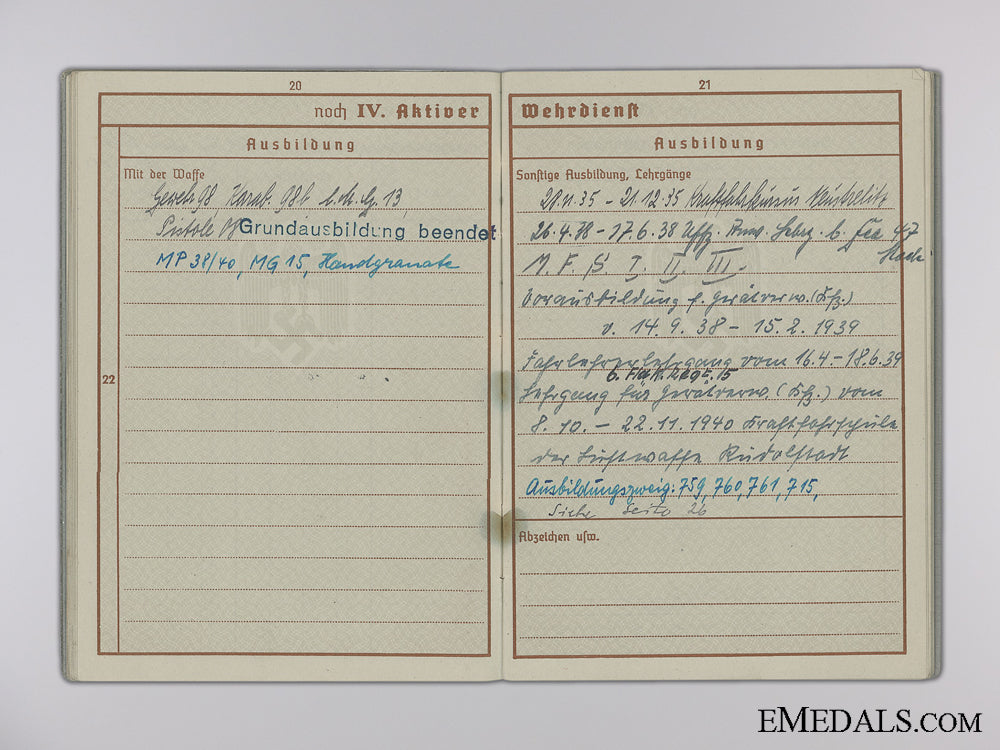 20
noch IV. Aktiver
Ausbildung
Mit der Waffe
Gewehr 98 Karab. 98b l.M.G. 13,
Pistole 08 Grundausbildung beendet
MP 38/40, MG 15, Handgranate
22
21
Wehrdienst
Ausbildung
Sonstige Ausbildung, Lehrgänge
29.11.35 - 21.12.35 Kraftfahrkursus Neustrelitz
26.4.38 - 17.6.38 Uffz. Anw. Lehrg. b.
M. F. S. I. II. III.
Vorausbildung f. Gerätverw. (Kfz.)
v. 14.9.38 - 15.2.1939
Fahrlehrerlehrgang vom 16.4. - 18.6.39
6. Flak. Regt. 15
Lehrgang für Gerätverw. (Kfz.) vom
8.10. - 22.11.1940 Kraftfahrschule
der Luftwaffe Rudolstadt
Ausbildungszweig: 759, 760, 761, 715,
Siehe Seite 26
Abzeichen usw.
EMEDALS.COM